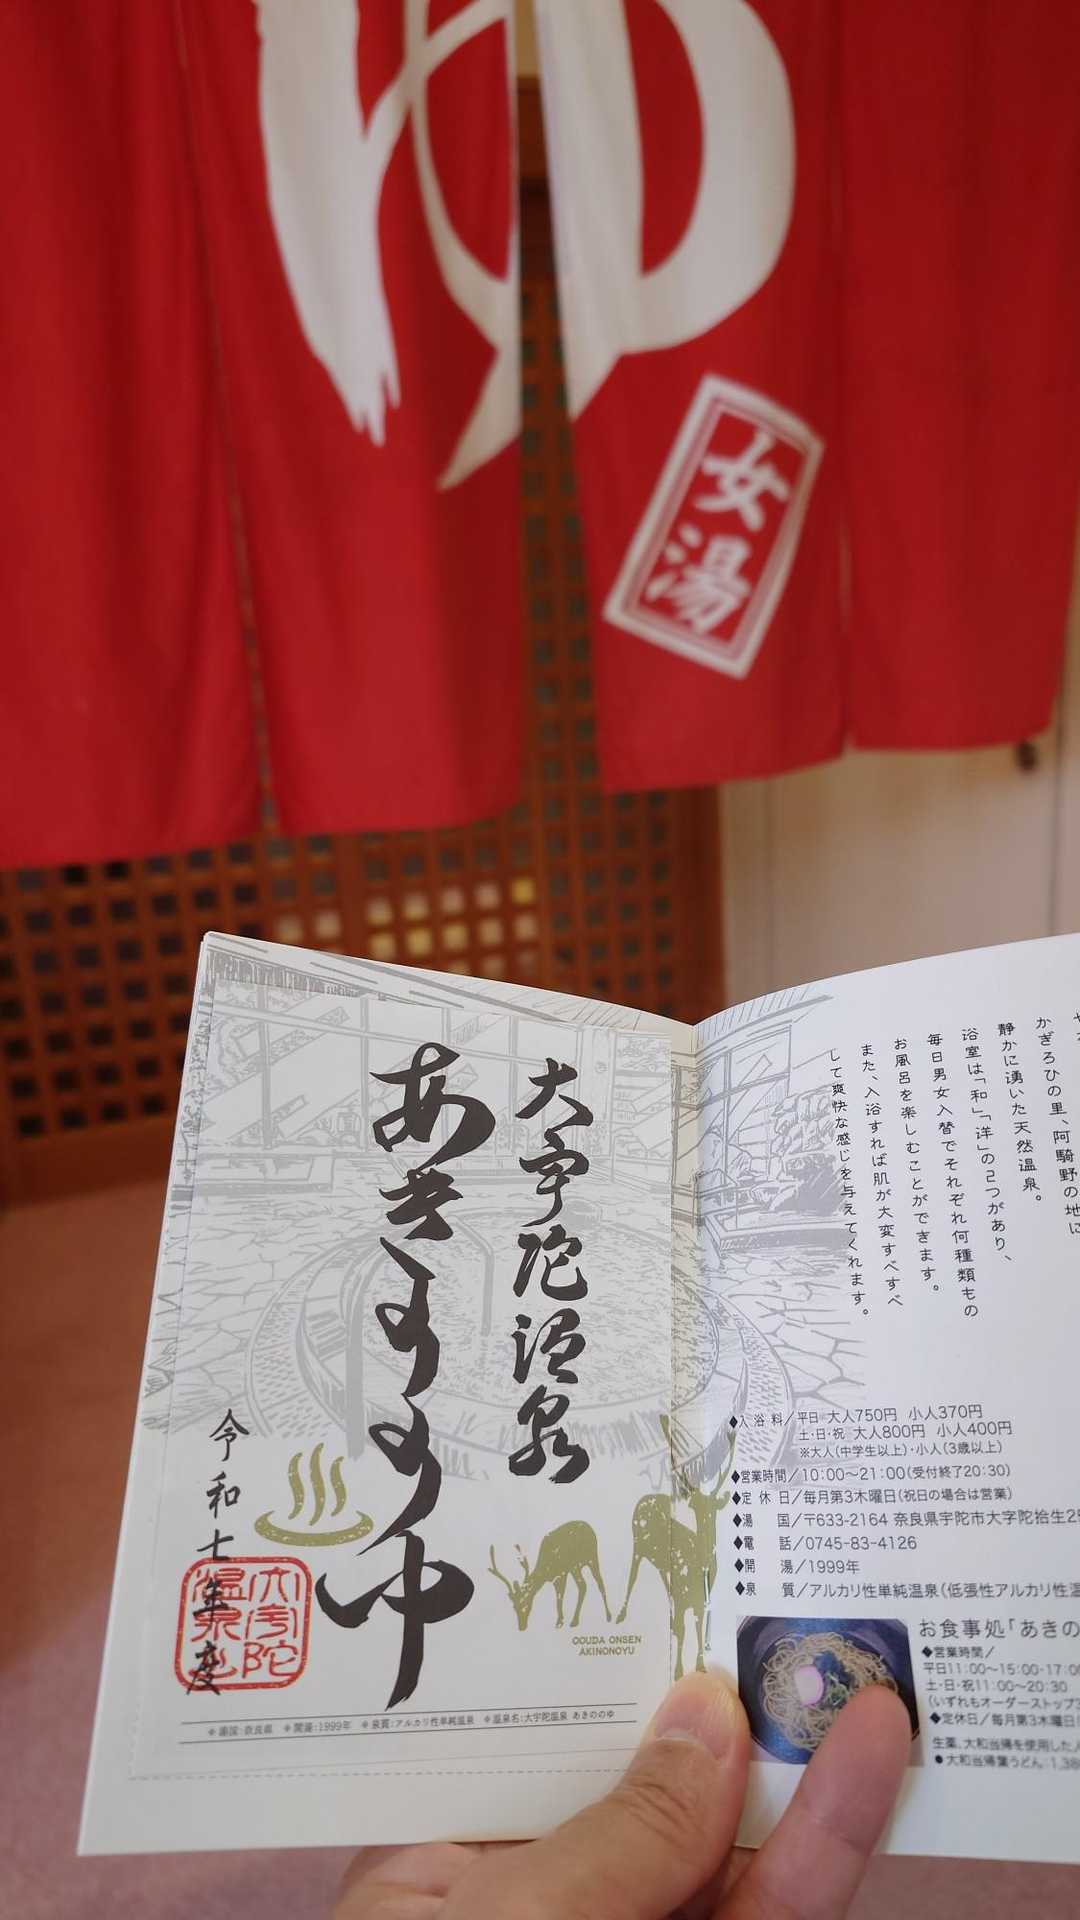 ゆ
女湯
大宇陀温泉
あきののゆ
令和七年度
大宇陀温泉
OOUDA ONSEN
AKINONOYU
＊湯国:奈良県 ＊開湯:1999年 ＊泉質:アルカリ性単純温泉 ＊温泉名:大宇陀温泉 あきののゆ
かぎろひの里、阿騎野の地に
静かに湧いた天然温泉。
浴室は「和」「洋」の2つがあり、
毎日男女入替でそれぞれ何種類もの
お風呂を楽しむことができます。
また、入浴すれば肌が大変すべすべ
して爽快な感じを与えてくれます。
◆入浴料／平日 大人750円 小人370円
土・日・祝 大人800円 小人400円
※大人(中学生以上)・小人(3歳以上)
◆営業時間／10:00〜21:00(受付終了20:30)
◆定休日／毎月第3木曜日(祝日の場合は営業)
◆湯国／〒633-2164 奈良県宇陀市大宇陀拾生2
◆電話／0745-83-4126
◆開湯／1999年
◆泉質／アルカリ性単純温泉(低張性アルカリ性
お食事処「あきの
◆営業時間／
平日11:00〜15:00・17:00
土・日・祝11:00〜20:30
(いずれもオーダーストップ
◆定休日／毎月第3木曜日
生薬、大和当帰を使用した
●大和当帰葉うどん:1,38